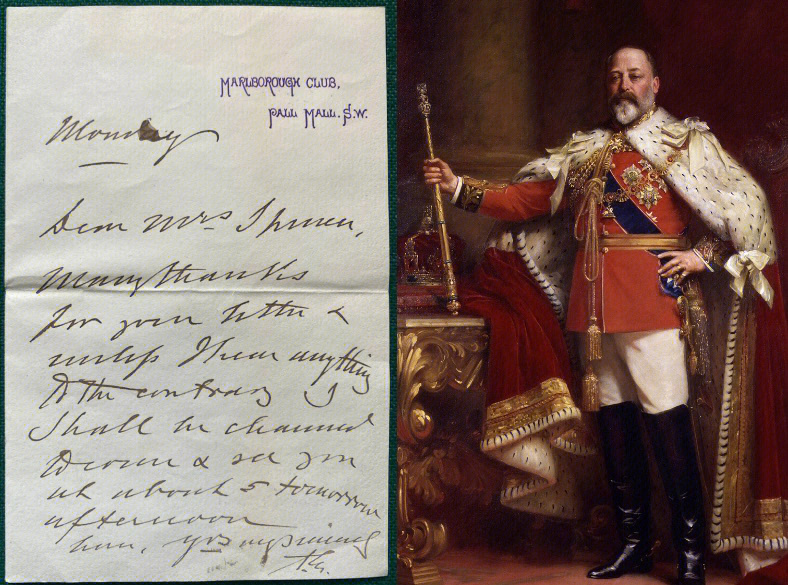 MARLBOROUGH CLUB,
PALL MALL. S.W.
Monday
Dear Mrs
Many thanks
for your letter &
unless I hear anything
to the contrary I
shall be charmed
to come & see you
at about 5 tomorrow
afternoon
yrs